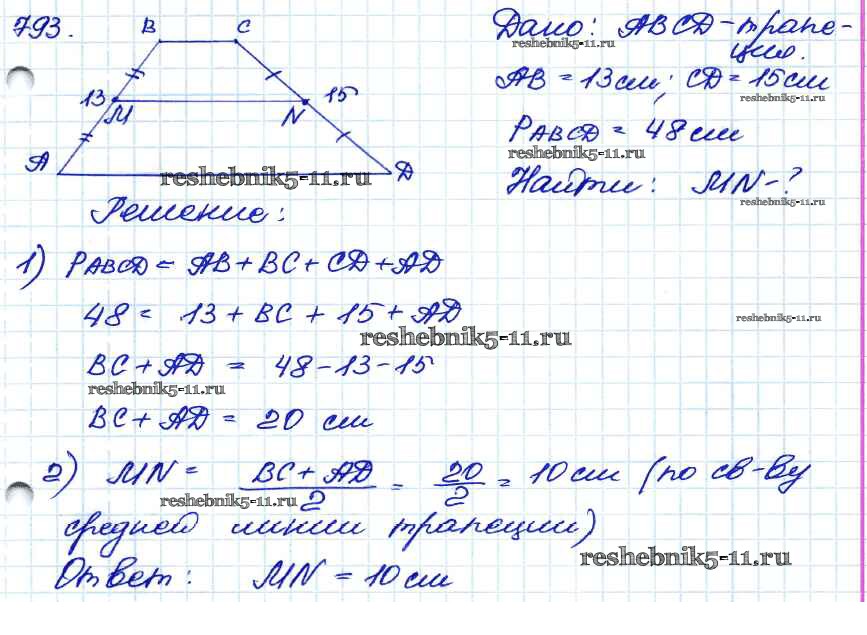 793.
B C
13 M N 15
A D
reshebnik5-11.ru
Дано: ABCD-трапе-
ция.
reshebnik5-11.ru
AB = 13см; CD = 15см
reshebnik5-11.ru
PABCD = 48см
reshebnik5-11.ru
Найти: MN-?
reshebnik5-11.ru
Решение:
1) PABCD = AB + BC + CD + AD
48 = 13 + BC + 15 + AD
reshebnik5-11.ru
reshebnik5-11.ru
BC + AD = 48-13-15
reshebnik5-11.ru
BC + AD = 20 см
2) MN = BC + AD / 2 = 20 / 2 = 10см (по св-ву
reshebnik5-11.ru
средней линии трапеции)
reshebnik5-11.ru
Ответ: MN = 10см